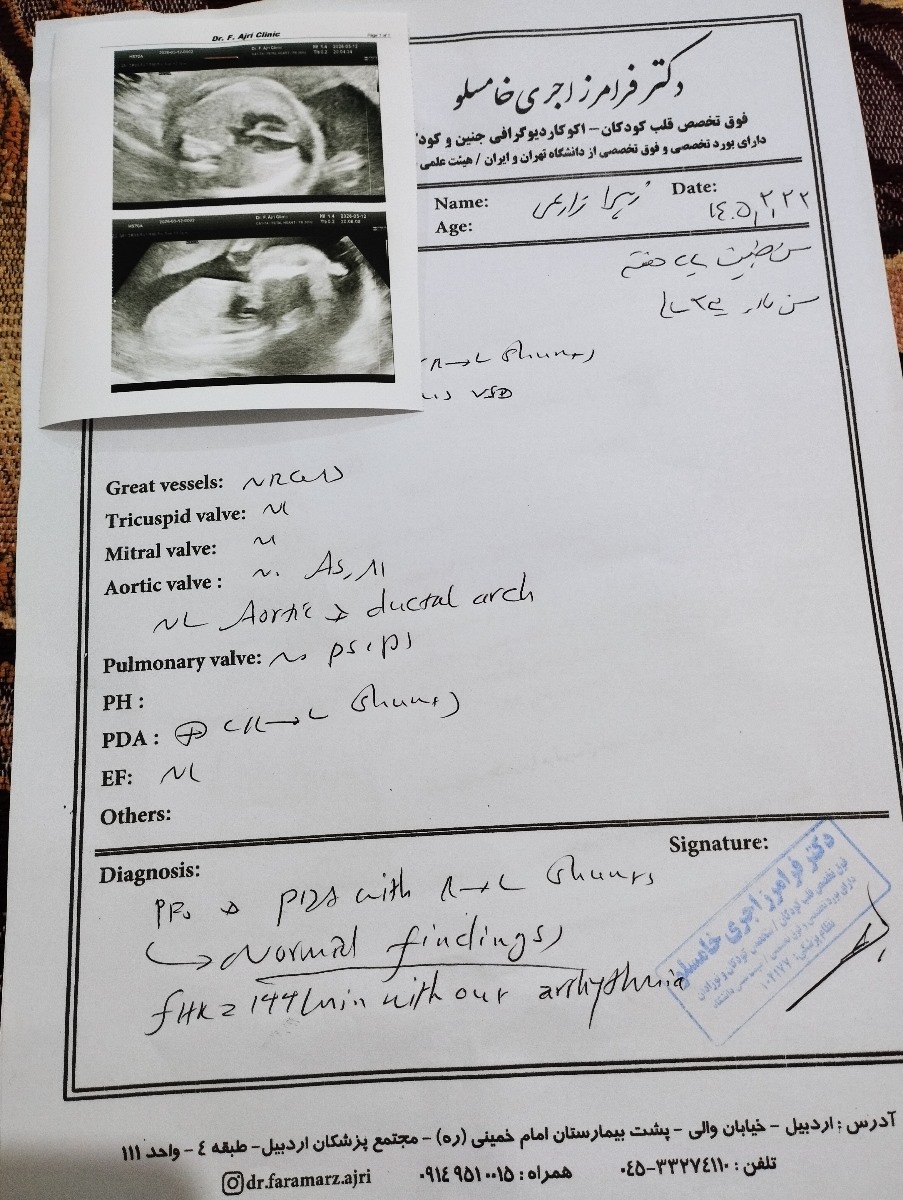 Dr. F. Ajri Clinic
Page 1 of 1
دکتر فرامرز اجری خامسلو
فوق تخصص قلب کودکان - اکوکاردیوگرافی جنین و کود
دارای بورد تخصصی و فوق تخصصی از دانشگاه تهران و ایران / هیئت علمی
Name: زهرا زارعی
Date: ۱۴۰۵,۲,۲۲
Age:
هفته
سن مادر
R→L Shunt)
VSD
Great vessels: NRGAS
Tricuspid valve: NL
Mitral valve: NL
Aortic valve : No AS, AI
NL Aortic & ductal arch
Pulmonary valve: No PS, PI
PH :
PDA : ⊕ (R→L Shunt)
EF: NL
Others:
Diagnosis:
Signature:
PFO & PDA with R→L Shunts
↳ Normal findings)
FHR = 144/min without arrhythmia
دکتر فرامرز اجری خامسلو
آدرس : اردبیل - خیابان والی - پشت بیمارستان امام خمینی (ره) - مجتمع پزشکان اردبیل - طبقه ٤ - واحد ۱۱۱
تلفن : ۳۳۲۷٤۱۱۰-۰٤۵ همراه : ۰۹۱٤ ۹۵۱ ۰۰۱۵ dr.faramarz.ajri